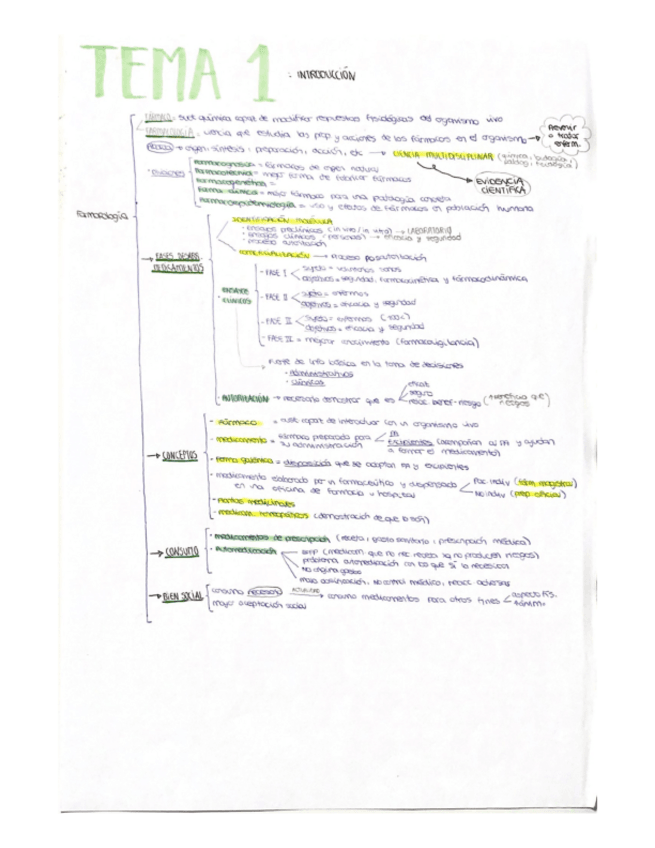 TEMA 1 : INTRODUCCIÓN
FÁRMACO, sust química capaz de modificar respuestas fisiológicas del organismo vivo
FARMACOLOGÍA, ciencia que estudia las prop y acciones de los fármacos en el organismo → Prevenir o tratar enferm.
→ origen, síntesis, preparación, acción, etc → CIENCIA MULTIDISCIPLINAR (química,
EVIDENCIA CIENTÍFICA
Farmacognosia = fármacos de origen natural
Farmacotecnia = mejor forma de fabricar fármacos
Farmacogenética =
Farma clínica = mejor fármaco para una patología concreta
Farmacoepidemiología = uso y efectos de fármacos en población humana
Farmacología
→ BASES DESARR. MEDICAMENTOS
IDENTIFICACIÓN MOLÉCULA
- ensayos preclínicos (in vivo / in vitro) → LABORATORIO
- ensayos clínicos (personas) → eficacia y seguridad
- proceso autorización
COMERCIALIZACIÓN → Proceso postautorización
ENSAYOS CLÍNICOS
- FASE I < sujeto = voluntarios sanos
objetivos = seguridad, farmacocinética y farmacodinámica
- FASE II < sujeto = enfermos
objetivos = eficacia y seguridad
sujeto = enfermos
objetivos = eficacia y seguridad
= mejorar conocimiento (farmacovigilancia)
Fuente de info básica en la toma de decisiones
· administrativas
· clínicas
AUTORIZACIÓN → necesario demostrar que es < eficaz
seguro
relac benef-riesgo
→ CONCEPTOS
- Fármaco = sust capaz de interactuar con un organismo vivo
- medicamento = fármaco preparado para su administración < PA
Excipientes (acompañan al PA y ayudan a formar el medicamento)
- Forma galénica = disposición que se adoptan PA y excipientes
- medicamento elaborado por un farmacéutico y dispensado en una oficina de farmacia u hospital < Pac indiv (fórm magistral)
No indiv (prep oficinal)
- Plantas medicinales
- medicam. homeopáticos (demostración de que lo son)
→ CONSUMO
- medicamentos de prescripción (receta, prescripción médica)
- Automedicación
(medicam que no rec receta xq no producen riesgos)
problema automedicación con los que sí la necesitan
mala dosificación, no control médico, reacc adversas
→ BIEN SOCIAL
consumo necesario ACTUALIDAD → consumo medicamentos para otros fines < aspecto fís.
mayor aceptación social